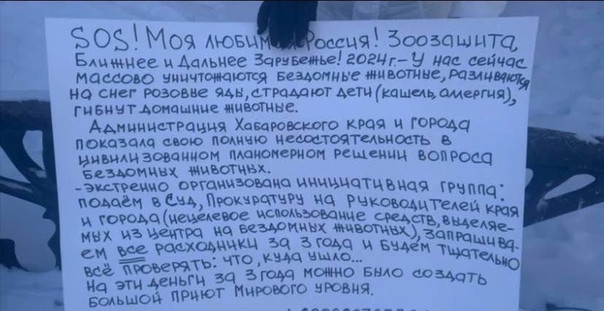 SOS! Моя любимая Россия! Зоозащита,
Ближнее и Дальнее Зарубежье! 2024г.- У нас сейчас
массово уничтожаются бездомные животные, разливаются
на снег розовые яды, страдают дети (кашель, аллергия),
гибнут домашние животные.
Администрация Хабаровского края и города
показала свою полную несостоятельность в
цивилизованном планомерном решении вопроса
бездомных животных.
-Экстренно организована инициативная группа:
подаём в Суд, Прокуратуру на руководителей края
и города (нецелевое использование средств, выделяе-
мых из центра на бездомных животных), запрашива-
ем все расходники за 3 года и будем тщательно
всё проверять: что, куда ушло...
На эти деньги за 3 года можно было создать
большой приют Мирового уровня.